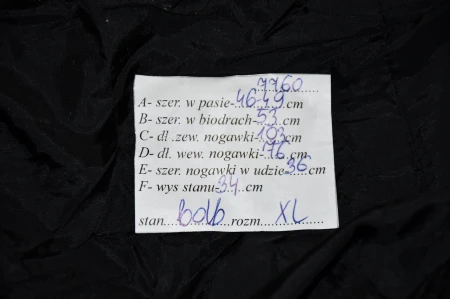 7760
A- szer. w pasie-46-49.cm
B- szer. w biodrach-53...cm
C- dł .zew. nogawki-103cm
D- dł. wew. nogawki-.76.cm
E- szer. nogawki w udzie-36cm
F- wys stanu-34..cm
stan. bdb rozm. XL